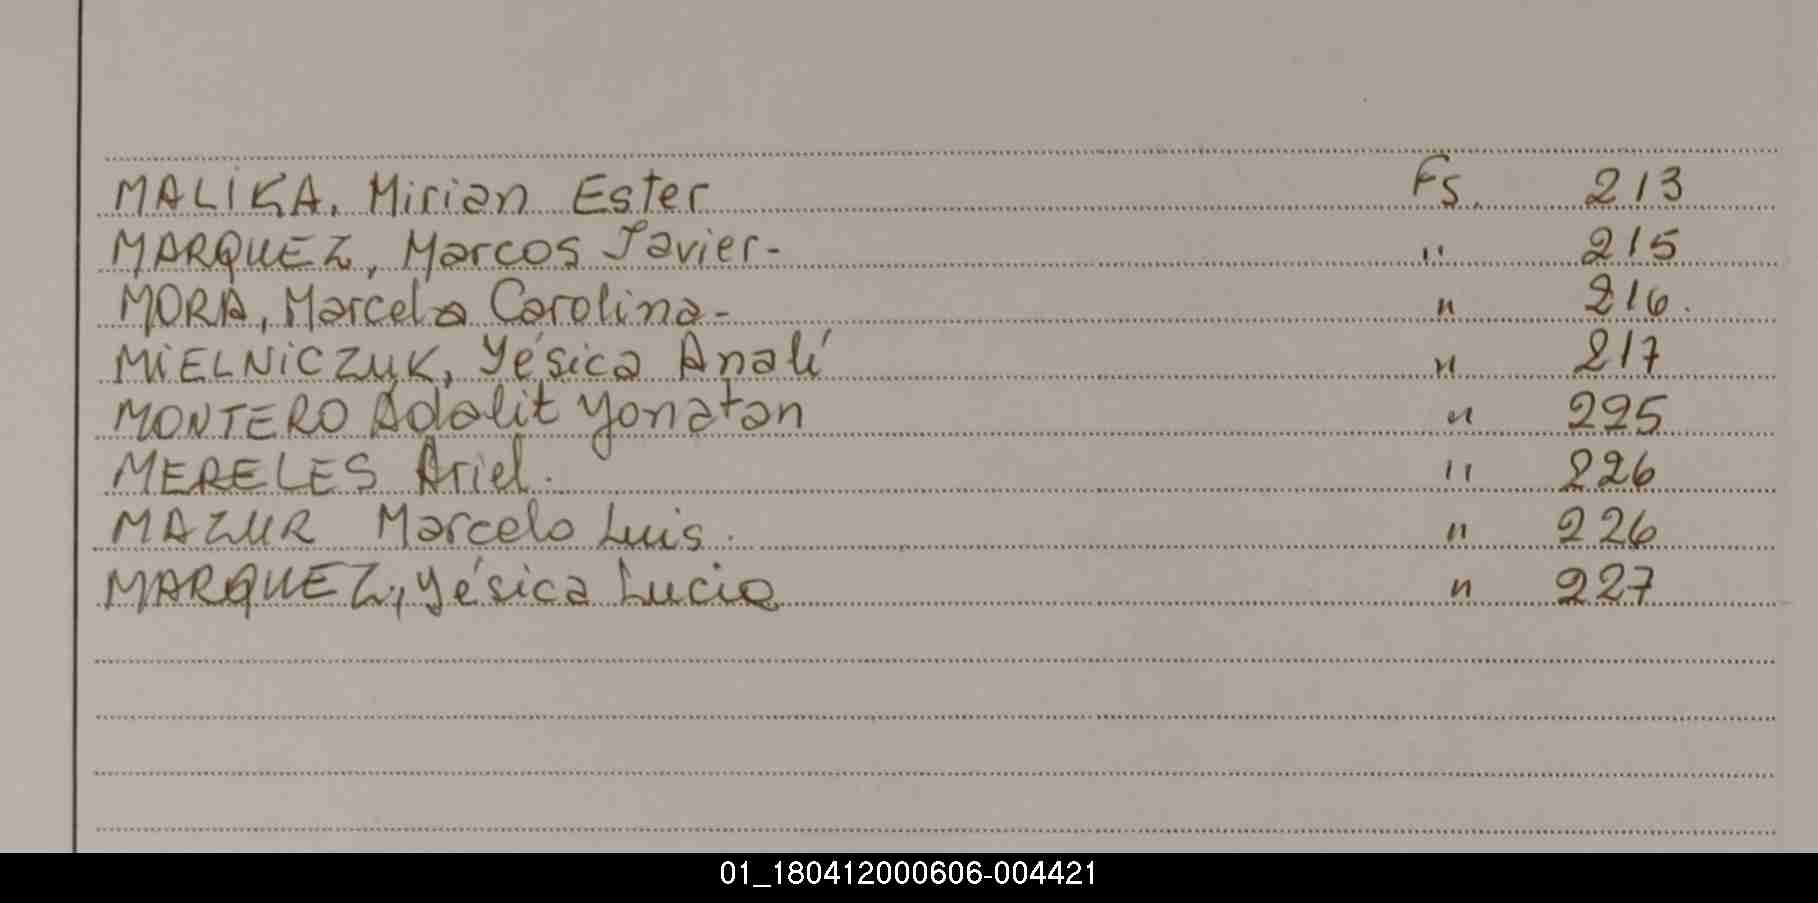 MALIKA, Mirian Ester Fs. 213
MARQUEZ, Marcos Javier- " 215
MORA, Marcela Carolina- " 216.
MIELNICZUK, Yésica Analí " 217
MONTERO Adalit Yonatan " 225
MERELES Ariel. " 226
MAZUR Marcelo Luis. " 226
MARQUEZ, Yésica Lucia " 227
01_180412000606-004421